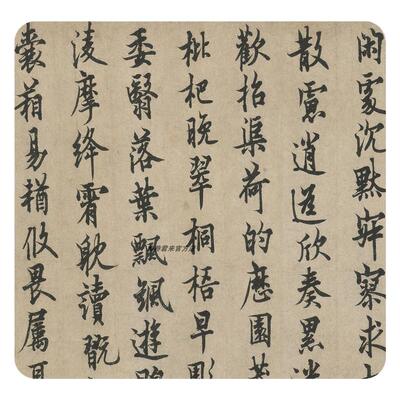 閑處沉默寂寥求
散慮逍遥欣奏累
歡招渠荷的歷園
枇杷晚翠桐梧早彫
委翳落葉飄颻遊
淩摩絳霄耽讀翫
囊箱易輶攸畏屬